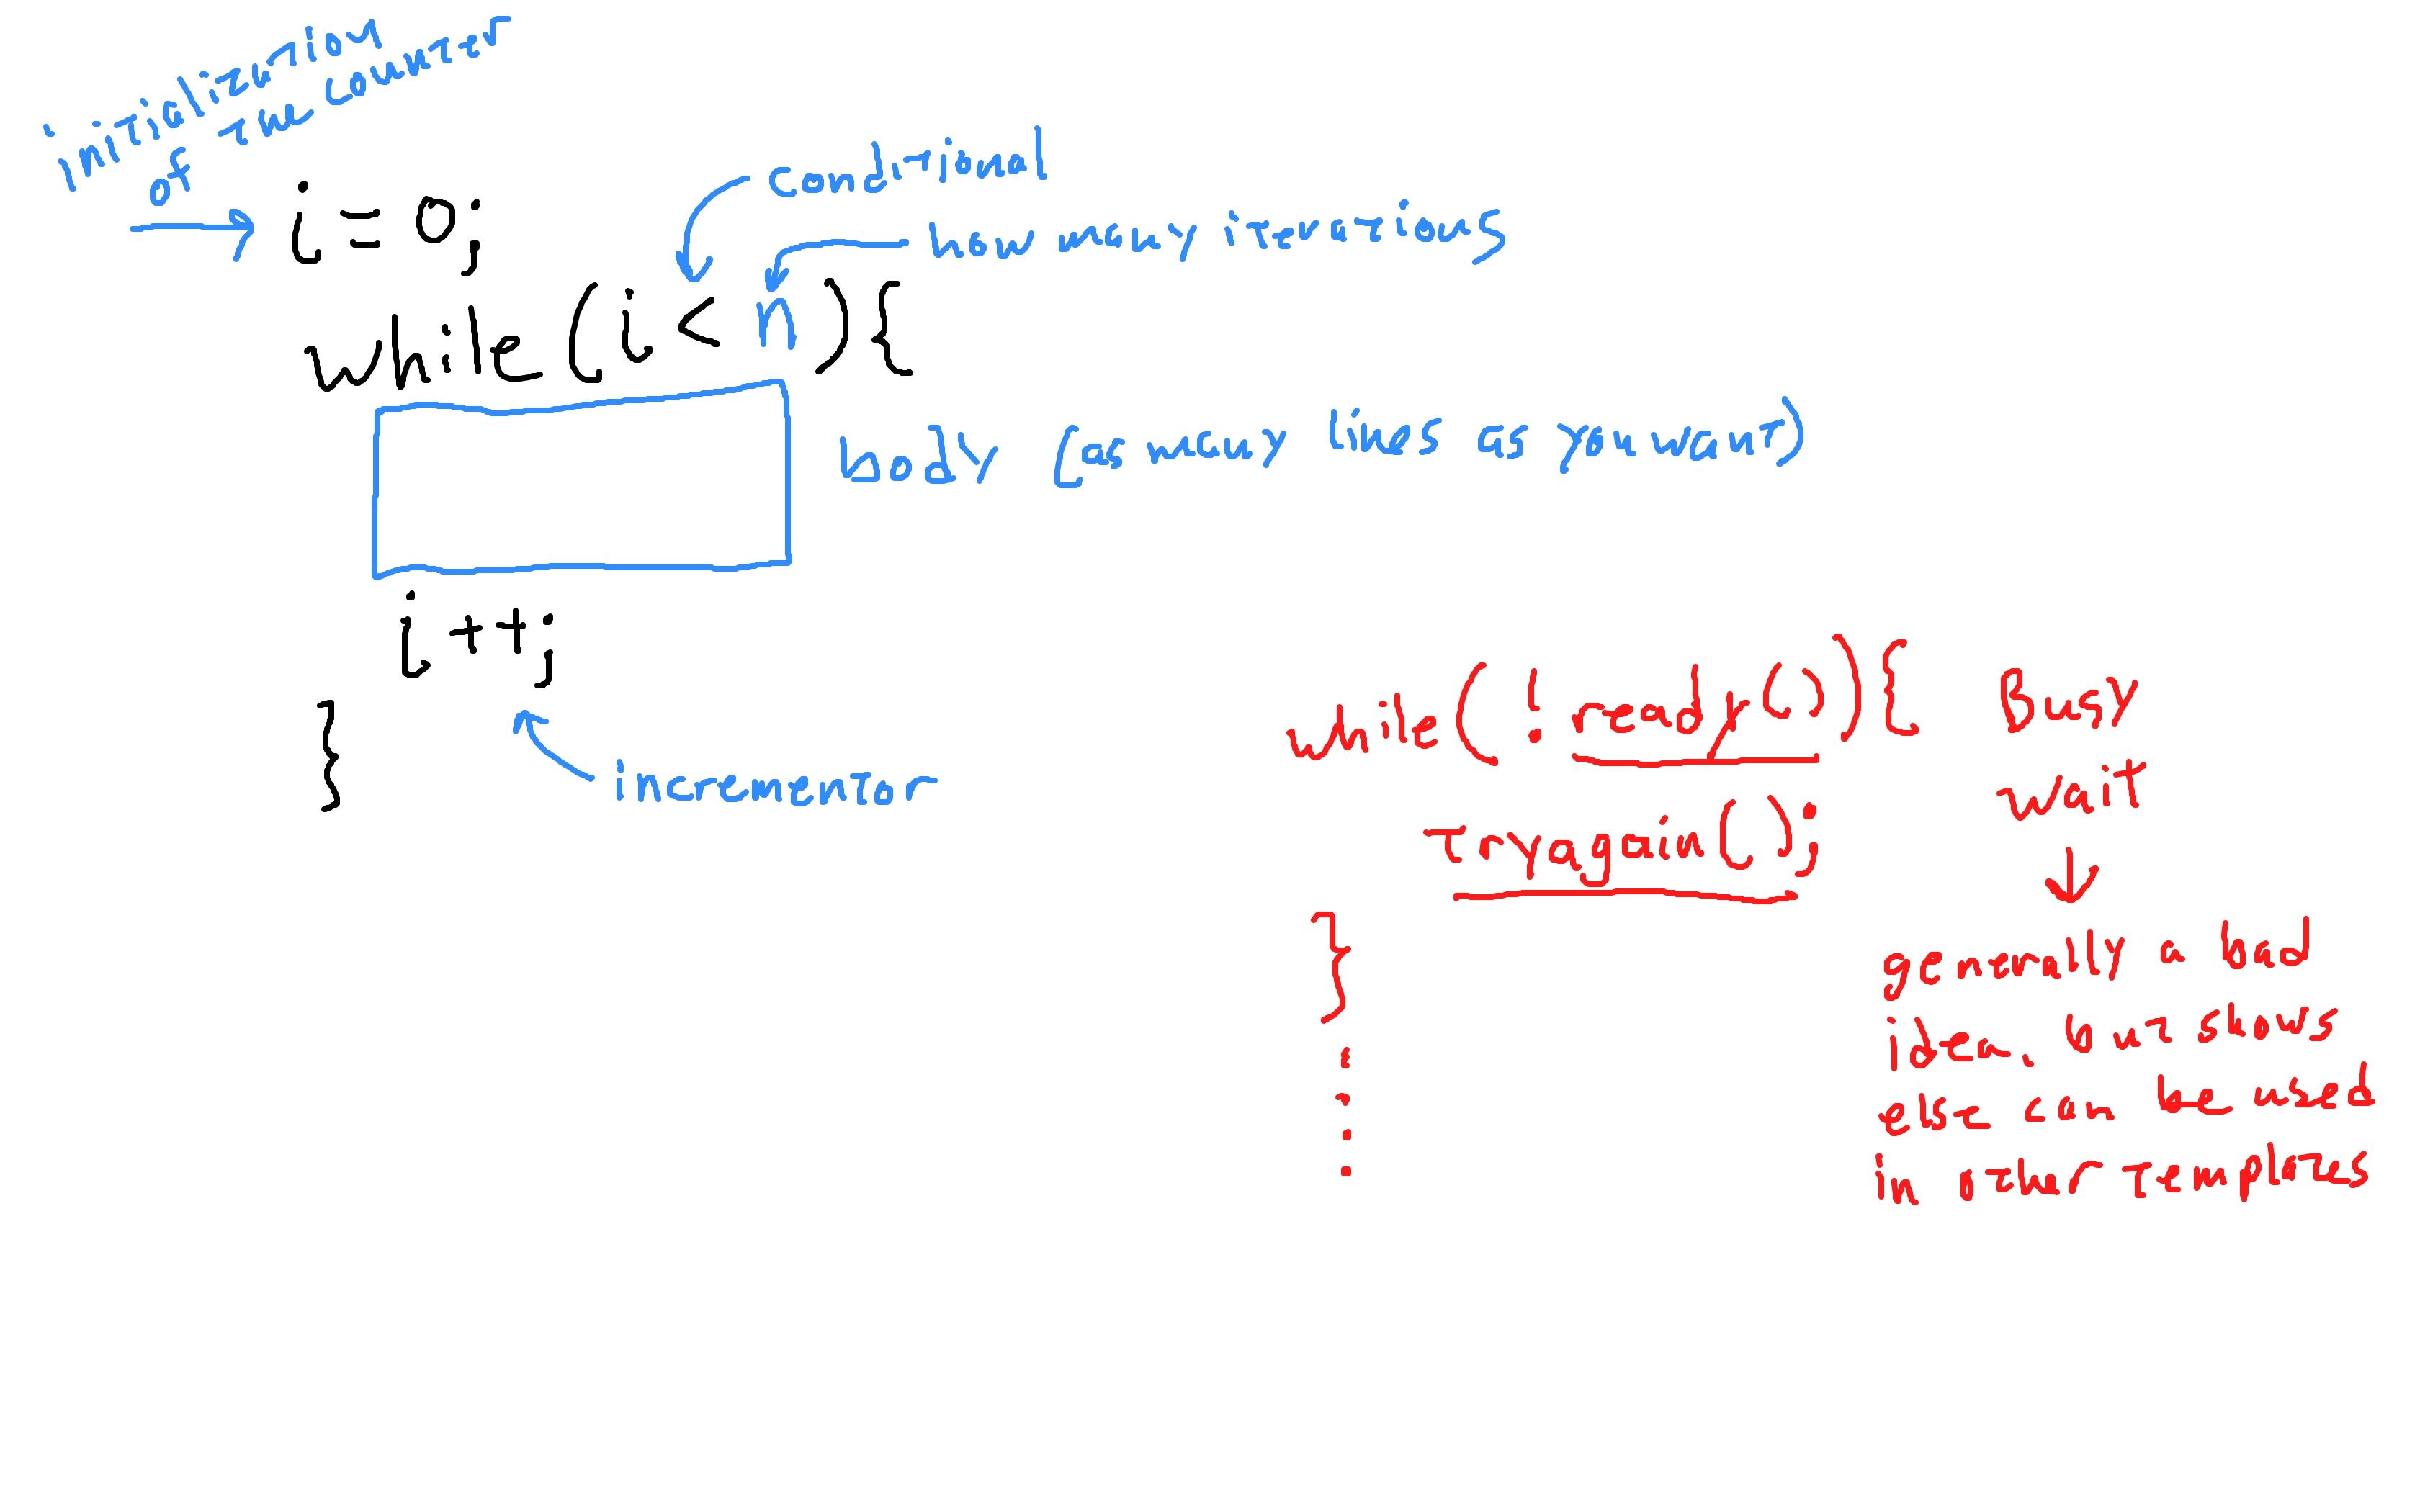 initialization
of the counter
i = 0;
conditional
how many iterations
while (i < n ){
body (as many lines as you want)
i ++;
}
incrementor
while( ! ready()){
tryagain();
}
Busy
wait
generally a bad
idea, but shows
else can be used
in other templates